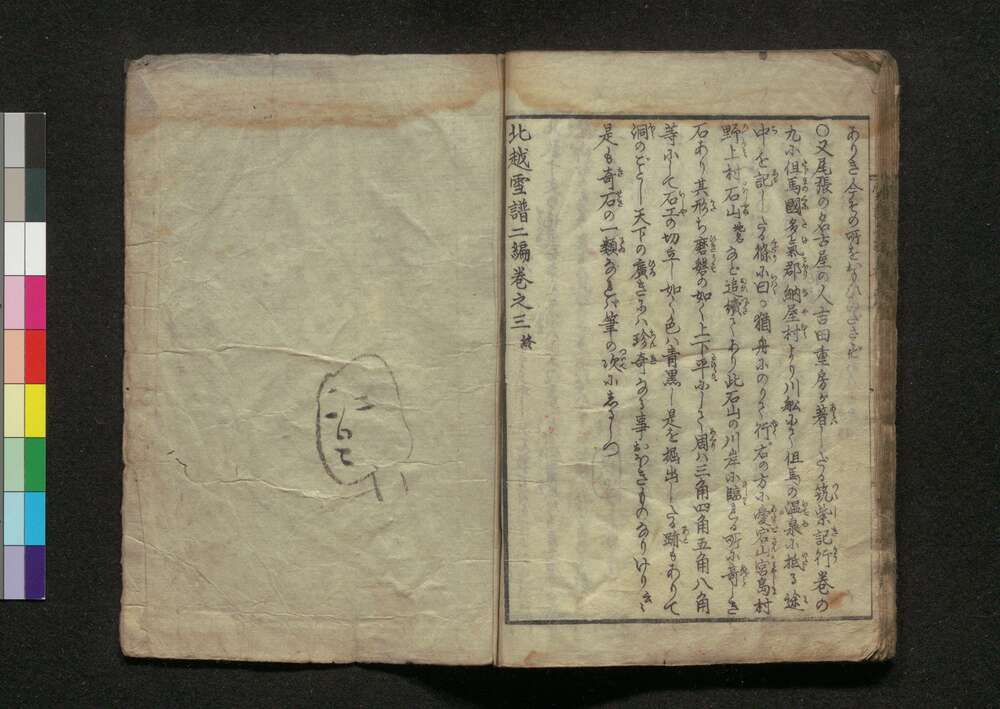 ありき今其の所をおもひいださず
〇又尾張の名古屋の人吉田重房が著したる筑紫記行巻の
九に但馬國多氣郡納屋村より川船にて但馬の温泉に抵る途
中を記したる條に曰く猶舟にのりて行右の方に愛宕山宮島村
野上村石山地名など追續てあり此石山の川岸に臨たる所に奇しき
石あり其形ち磨磐の如く上下平にして周は三角四角五角八角
等にして石工の切立し如く色は青黒し是を掘出したる跡もありて
洞のごとし天下の廣きには珍奇なる事おほきものなりけりさて
是も奇石の一類なれば筆の次にしるしつ
北越雪譜二編巻之三終